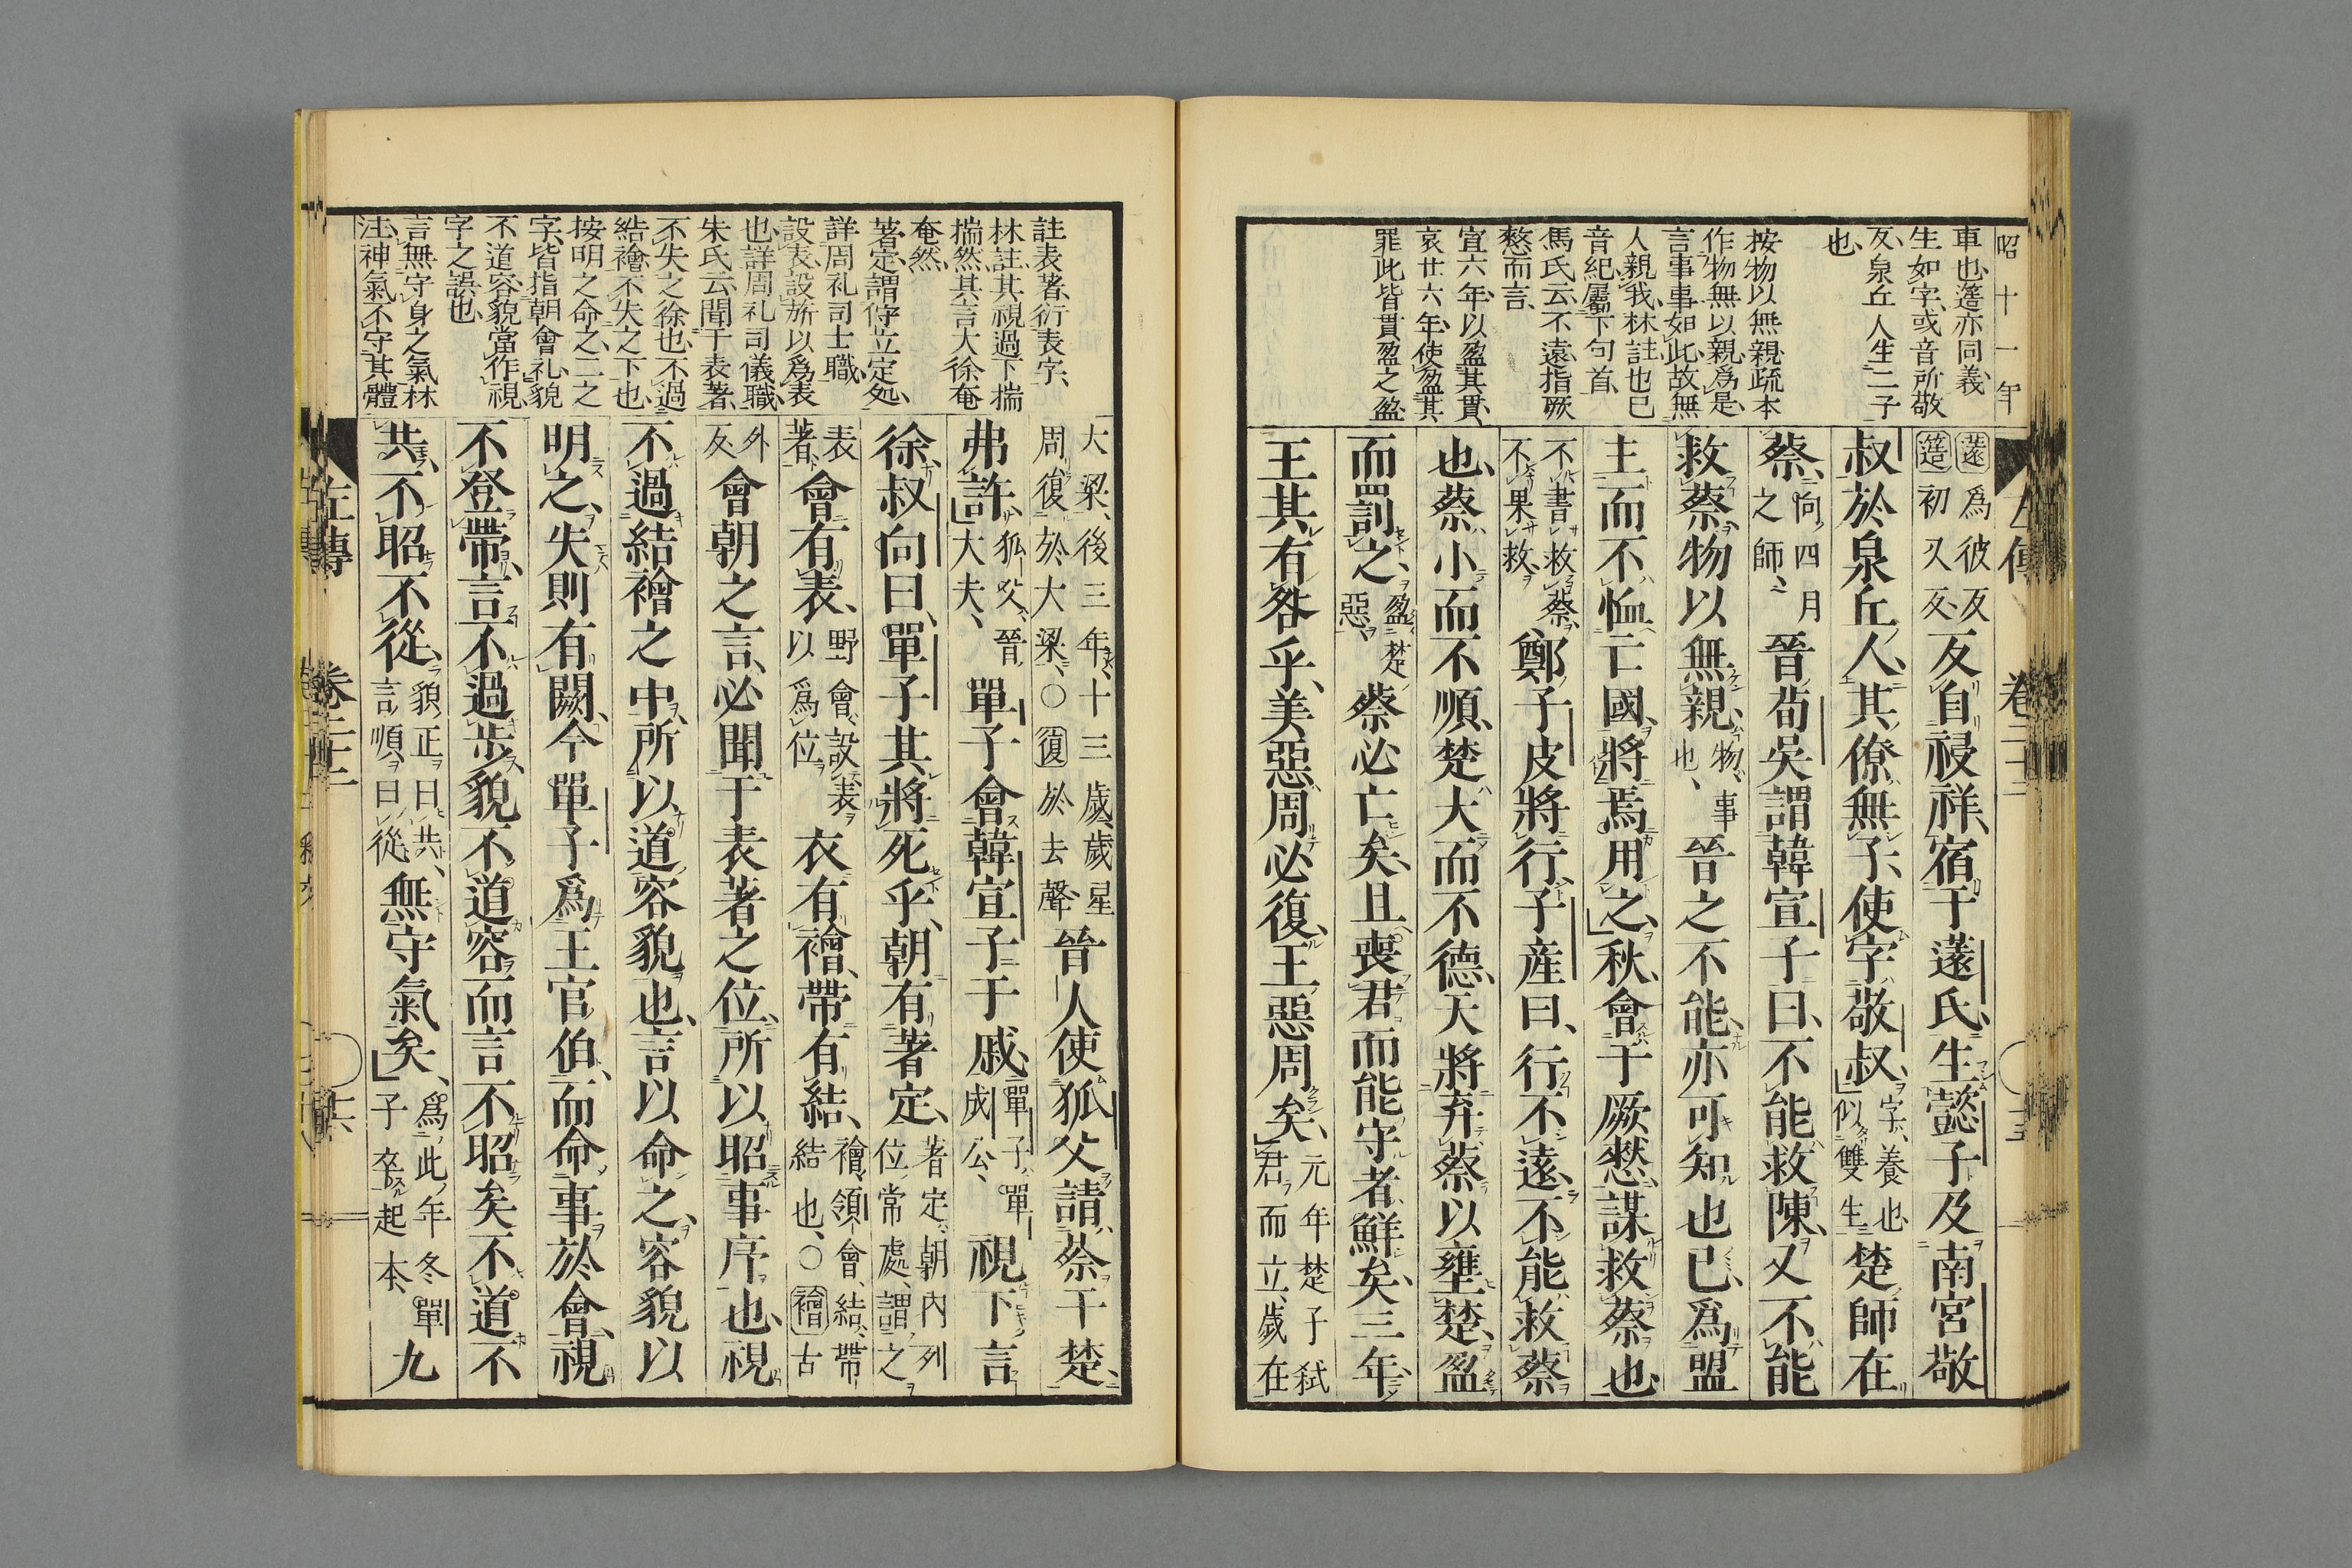 昭十一年
車也薳亦同義
生如字或音所敬
反泉丘人生二子
也
按物以無親疏本
作物無以親爲是
言事事如此故無
人親我林註也已
音紀屬下句首
馬氏云不遠指厥
憖而言
宜六年以盈其貫
哀廿六年使盈其
罪此皆貫盈之盈
薳爲彼反
薳初又反
反自祲祥宿于薳氏生懿子及南宮敬
叔於泉丘人其僚無子使字敬叔字養也似雙生楚師在
蔡向四月之師晉荀吳謂韓宣子曰不能救陳又不能
救蔡物以無親物事也晉之不能亦可知也已爲盟
主而不恤亡國將焉用之秋會于厥憖謀救蔡也
不書救蔡不果救鄭子皮將行子産曰行不遠不能救蔡
也蔡小而不順楚大而不德天將弃蔡以壅楚盈
而罰之盈楚惡蔡必亡矣且喪君而能守者鮮矣三年
王其有咎乎美惡周必復王惡周矣元年楚子弒君而立歲在
註表著衍表字
林註其視過下揣
揣然其言大徐奄
奄然
著定謂待立定処
詳周礼司士職
設表設斾以爲表
也詳周礼司儀職
朱氏云聞于表著
不失之徐也不過
結襘不失之下也
按明之命之二之
字皆指朝會礼貌
不道容貌當作視
字之誤也
言無守身之氣林
注神氣不守其體
大梁後三年十三歲歲星周復於大梁○復於去聲晉人使狐父請蔡于楚
弗許狐父晉大夫單子會韓宣子于戚單子單成公視下言
徐叔向曰單子其將死乎朝有著定著定朝內列位常處謂之
表著會有表野會設表以爲位衣有襘帶有結襘領會結帶結也○襘古
外反會朝之言必聞于表著之位所以昭事序也視
不過結襘之中所以道容貌也言以命之容貌以
明之失則有闕今單子爲王官伯而命事於會視
不登帶言不過步貌不道容而言不昭矣不道不
共不昭不從貌正曰共言順曰從無守氣矣爲此年冬單子卒起本九
左傳 卷二十三